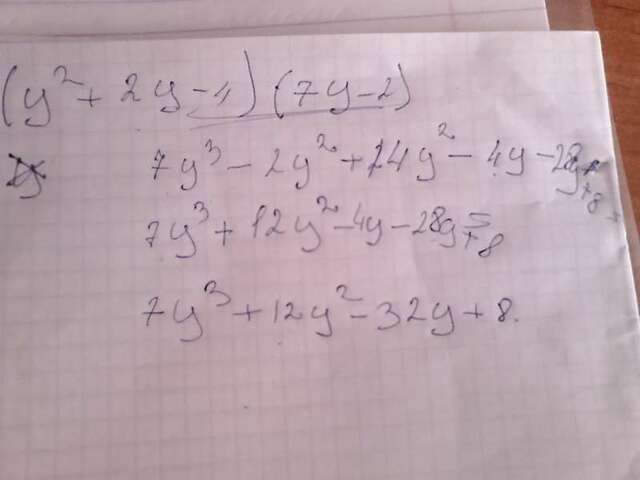 (y² + 2y - 4) (7y - 2)
7y³ - 2y² + 14y² - 4y - 28y + 8 =
7y³ + 12y² - 4y - 28y + 8 =
7y³ + 12y² - 32y + 8.